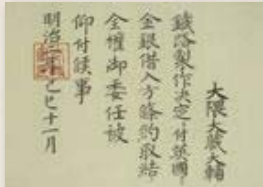 大隈大蔵大輔
鐵路製作決定ニ付英國
金銀借入方條約取結
全權御委任被
仰付候事
明治二年己巳十一月